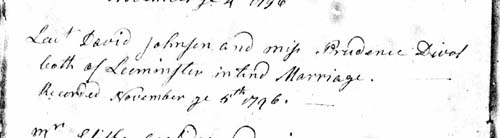 November ye 4 1796
Leut David Johnson and miss Prudence Divol
both of Leominster intend Marriage.
Recorded November ye 5th 1796.
mr